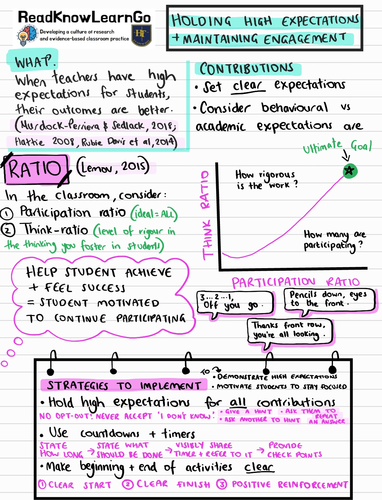 ReadKnowLearnGo
Developing a culture of research
and evidence-based classroom practice
HOLDING HIGH EXPECTATIONS
+ MAINTAINING ENGAGEMENT
WHAT?
When teachers have high
expectations for students,
their outcomes are better.
(Murdock-Perriera & Sedlack, 2018;
Hattie 2008, Rubie Davis et al, 2014)
CONTRIBUTIONS
• Set clear expectations
• Consider behavioural vs
academic expectations are
RATIO (Lemov, 2015)
In the classroom, consider:
① Participation ratio (ideal: ALL)
② Think-ratio (level of rigour in
the thinking you foster in students)
Ultimate Goal
How rigorous
is the work?
THINK RATIO
How many are
participating?
PARTICIPATION RATIO
HELP STUDENT ACHIEVE
+ FEEL SUCCESS
= STUDENT MOTIVATED
TO CONTINUE PARTICIPATING
3...2...1,
Off you go.
Pencils down, eyes
to the front.
Thanks front row,
you're all looking.
STRATEGIES TO IMPLEMENT
TO → • DEMONSTRATE HIGH EXPECTATIONS
• MOTIVATE STUDENTS TO STAY FOCUSED
• Hold high expectations for all contributions
NO OPT-OUT: NEVER ACCEPT 'I DON'T KNOW'.
• GIVE A HINT • ASK THEM TO
REPEAT
AN ANSWER
• ASK ANOTHER TO HINT
• Use countdowns + timers
STATE HOW LONG → STATE WHAT SHOULD BE DONE → VISIBLY SHARE TIMER + REFER TO IT → PROVIDE CHECK POINTS
• Make beginning + end of activities clear
① CLEAR START ② CLEAR FINISH ③ POSITIVE REINFORCEMENT